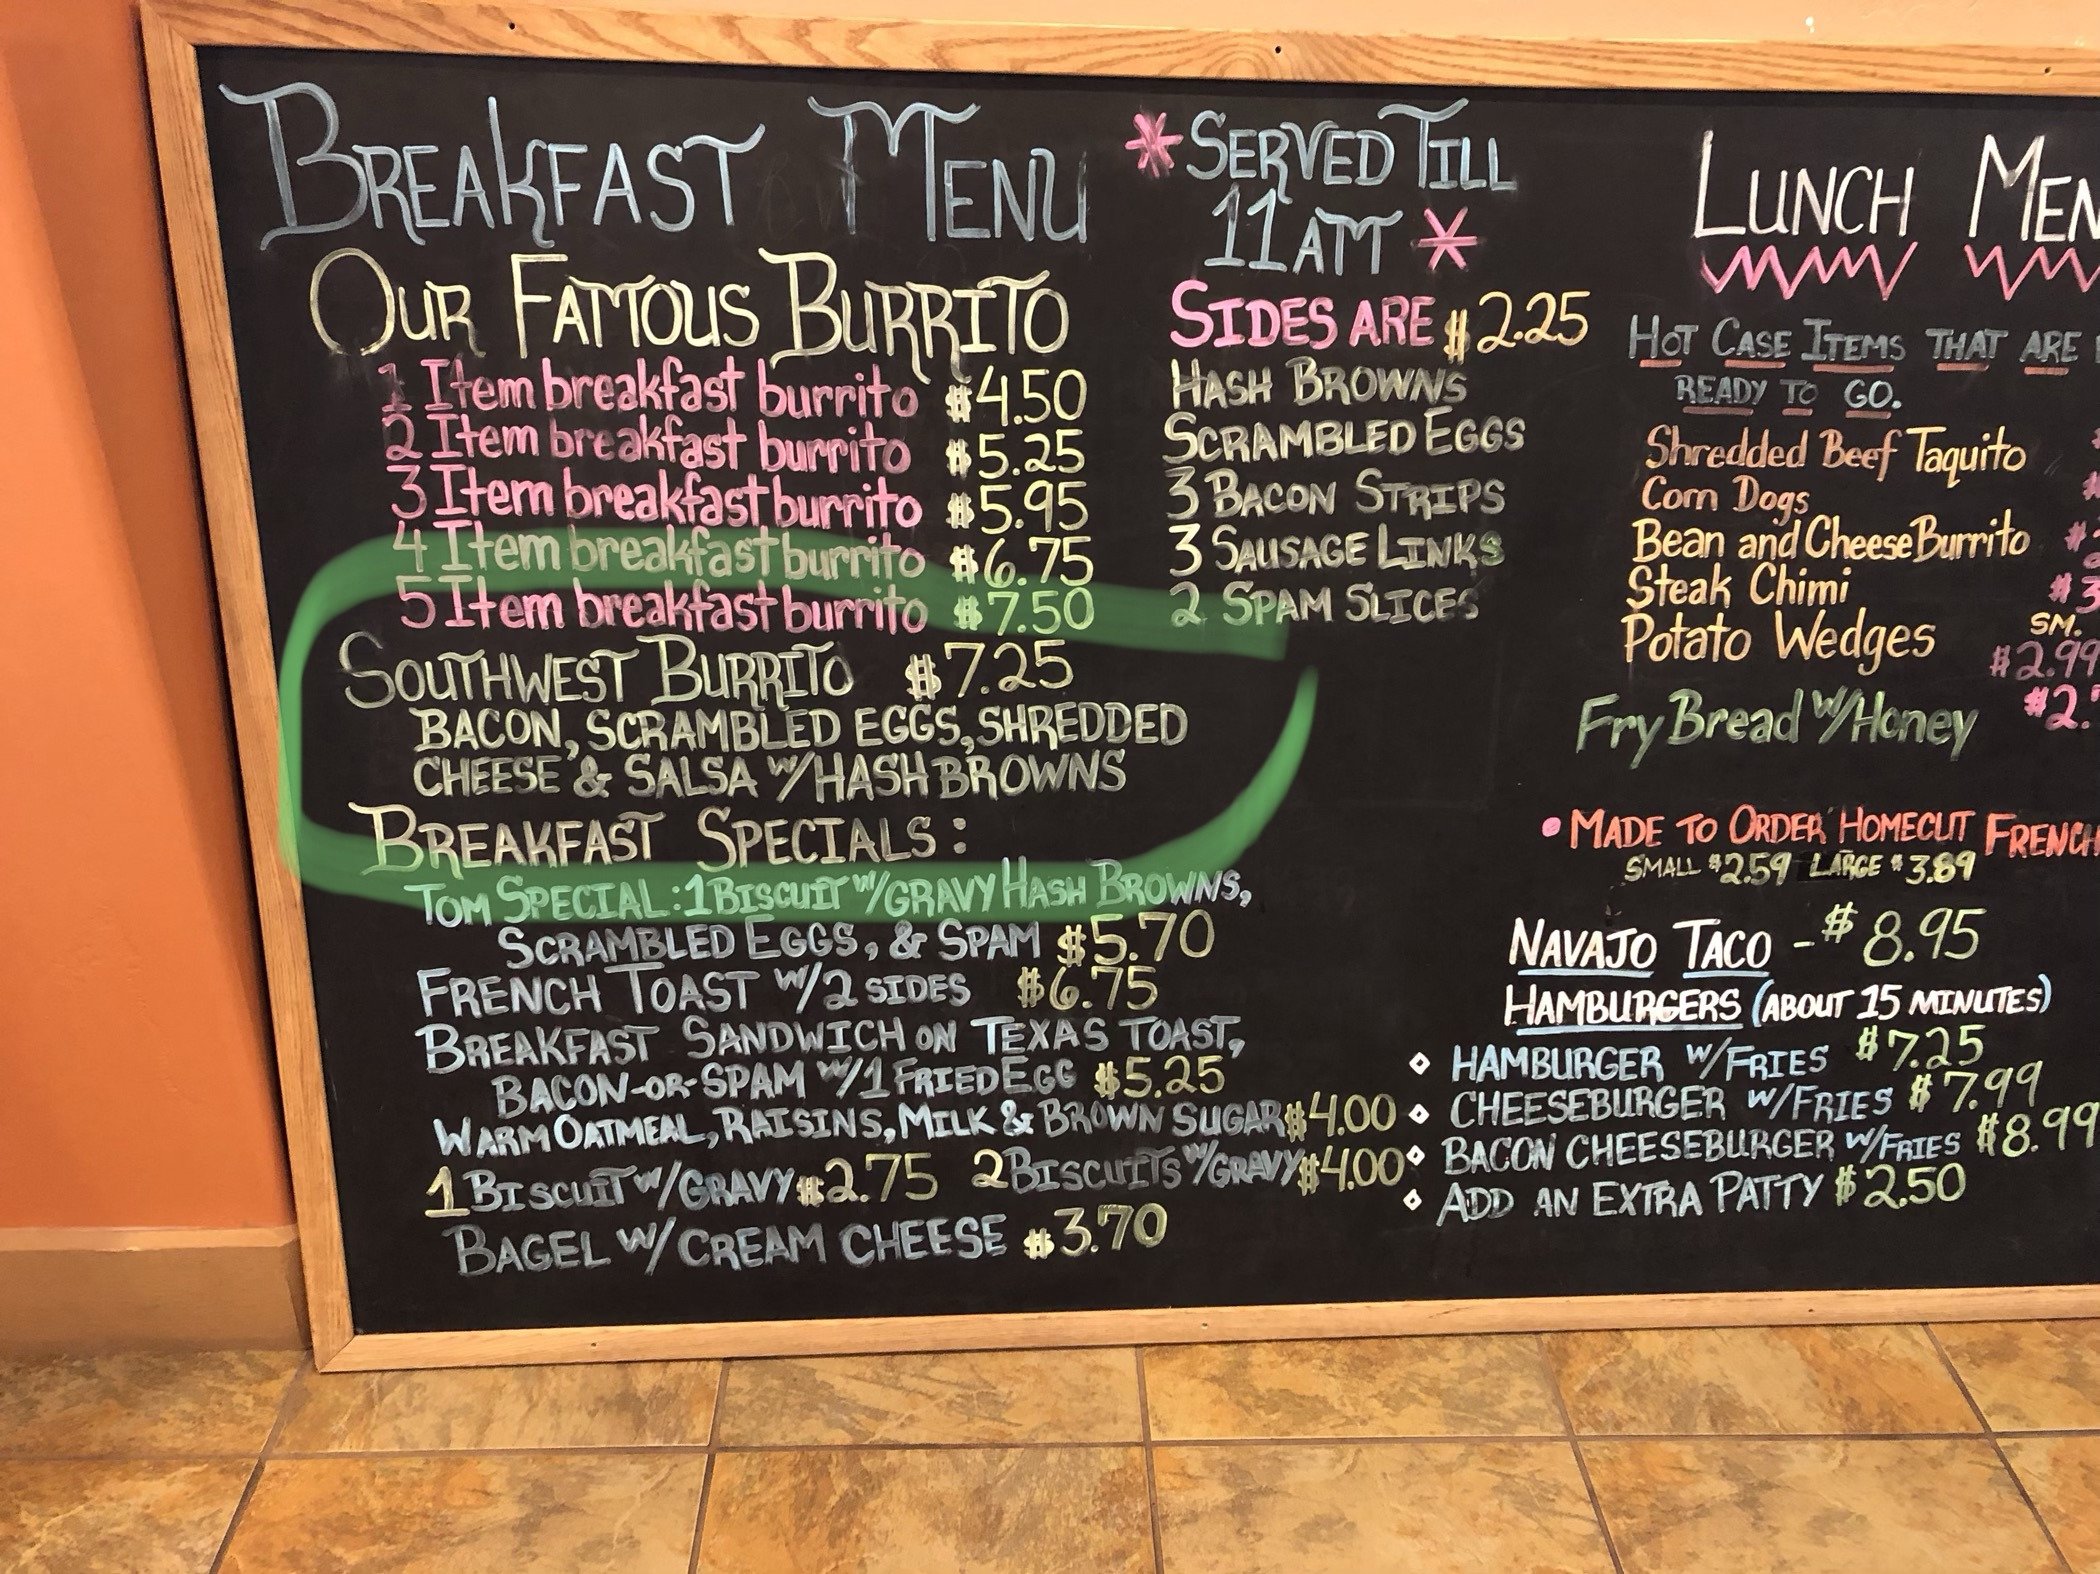 BREAKFAST MENU
OUR FAMOUS BURRITO
1 Item breakfast burrito $4.50
2 Item breakfast burrito $5.25
3 Item breakfast burrito $5.95
4 Item breakfast burrito $6.75
5 Item breakfast burrito $7.50
SOUTHWEST BURRITO $7.25
BACON, SCRAMBLED EGGS, SHREDDED
CHEESE & SALSA w/HASH BROWNS
BREAKFAST SPECIALS:
TOM SPECIAL: 1 BISCUIT w/GRAVY HASH BROWNS,
SCRAMBLED EGGS, & SPAM $5.70
FRENCH TOAST w/2 SIDES $6.75
BREAKFAST SANDWICH ON TEXAS TOAST,
BACON-OR-SPAM w/1 FRIED EGG $5.25
WARM OATMEAL, RAISINS, MILK & BROWN SUGAR $4.00
1 BISCUIT w/GRAVY $2.75 2 BISCUITS w/GRAVY $4.00
BAGEL w/CREAM CHEESE $3.70
*SERVED TILL
11 AM*
SIDES ARE $2.25
HASH BROWNS
SCRAMBLED EGGS
3 BACON STRIPS
3 SAUSAGE LINKS
2 SPAM SLICES
LUNCH MEN
HOT CASE ITEMS THAT ARE
READY TO GO.
Shredded Beef Taquito
Corn Dogs
Bean and Cheese Burrito
Steak Chimi $3
Potato Wedges SM.
$2.99
Fry Bread w/Honey $2.
• MADE TO ORDER HOMECUT FRENCH
SMALL $2.59 LARGE $3.89
NAVAJO TACO - $8.95
HAMBURGERS (ABOUT 15 MINUTES)
◇ HAMBURGER w/FRIES $7.25
◇ CHEESEBURGER w/FRIES $7.99
◇ BACON CHEESEBURGER w/FRIES $8.99
◇ ADD AN EXTRA PATTY $2.50